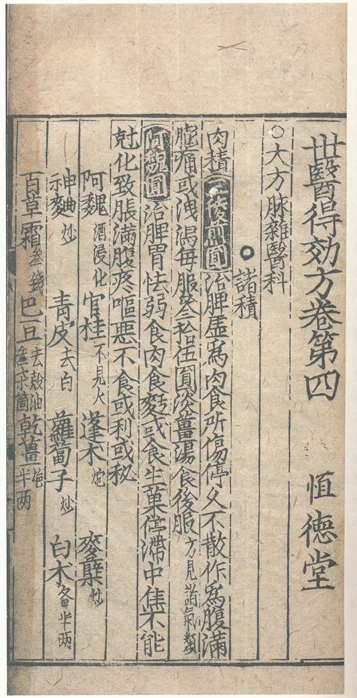 世醫得効方卷第四 恒德堂
○大方脉雜醫科
諸積
肉積 三稜煎圓 治脾虚為肉食所傷停久不散作為腹滿
腹痛或洩瀉每服叄拾圓淡薑湯食後服方見諸氣類
阿魏圓 治脾胃怯弱食肉食麪或食生菓停滯中焦不能
尅化致脹滿腹疼嘔惡不食或利或秘
阿魏酒浸化 官桂不見火 蓬术炮 麥櫱炒
神麯炒 青皮去白 蘿蔔子炒 白术各半兩
百草霜叄錢 巴豆去殼油 乾薑炮半兩